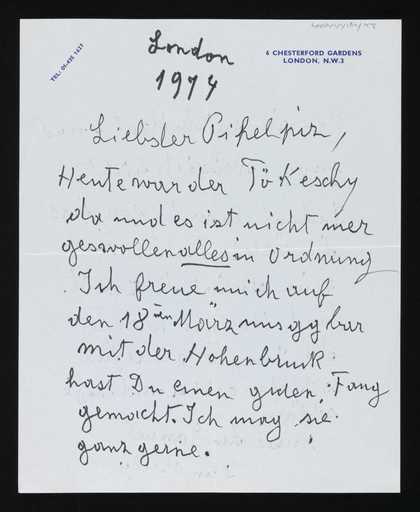 London
1974
TEL: 01-435 1631
6 CHESTERFORD GARDENS
LONDON, N.W.3
Liebster Pipelpiz,
Heute war der Tökeschy
da und es ist nicht mer
geswollen alles in Ordnung
Ich freue mich auf
den 18ten März
mit der Hohenbruk
hast Du einen guten Fang
gemacht. Ich mag sie
ganz gerne.